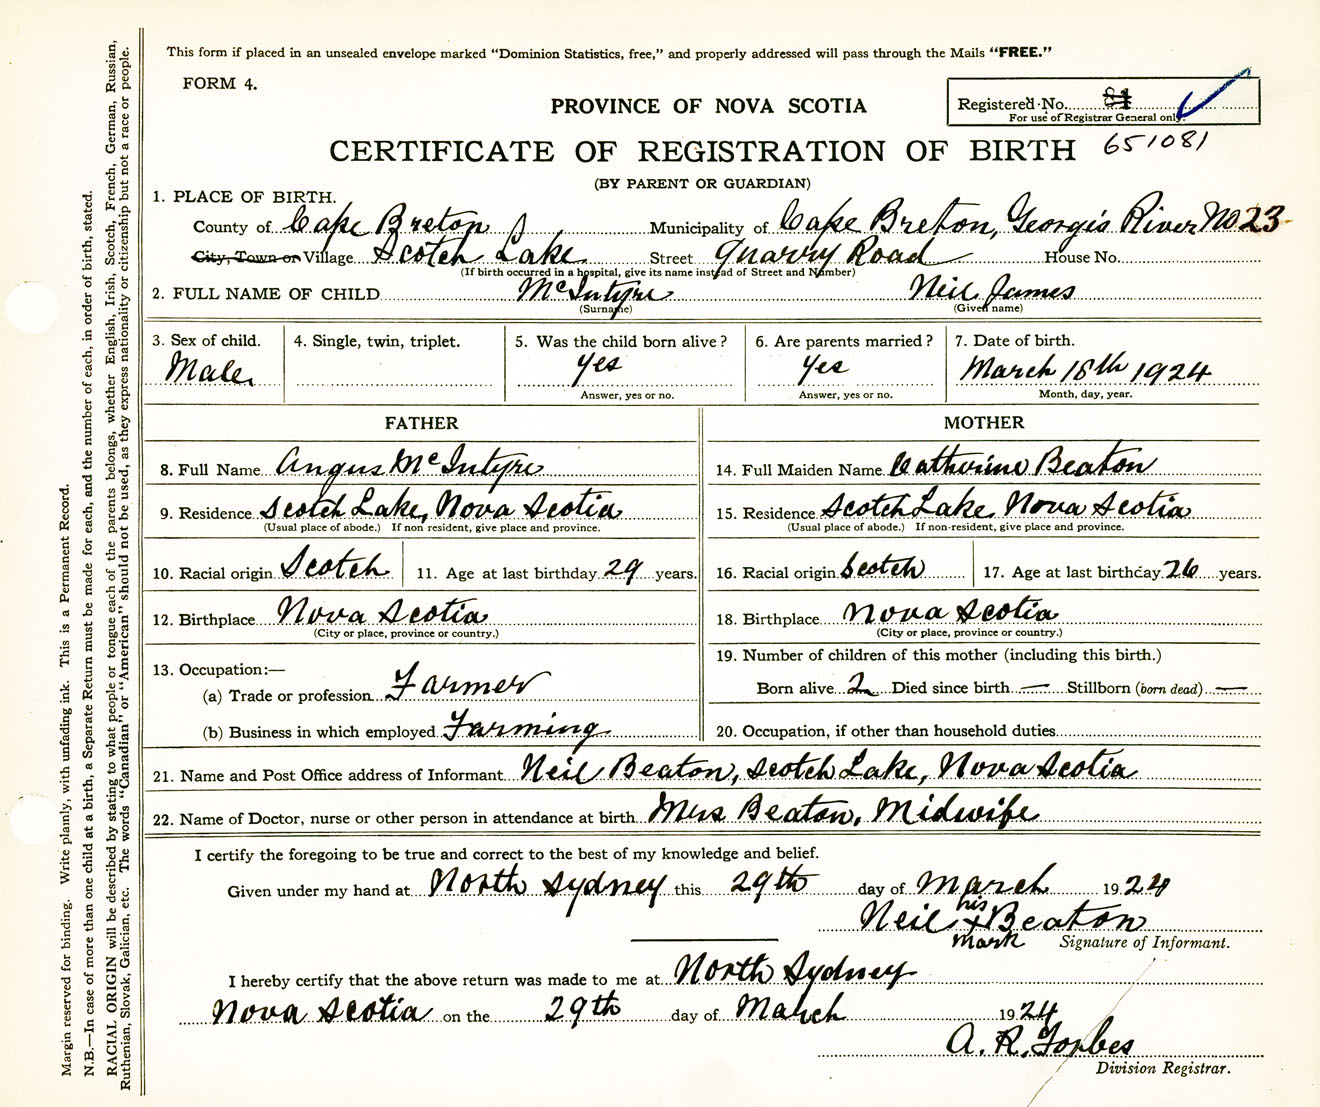 This form if placed in an unsealed envelope marked "Dominion Statistics, free," and properly addressed will pass through the Mails "FREE."
FORM 4.
PROVINCE OF NOVA SCOTIA
Registered No. 81
For use of Registrar General only.
651081
CERTIFICATE OF REGISTRATION OF BIRTH
(BY PARENT OR GUARDIAN)
1. PLACE OF BIRTH.
County of Cape Breton Municipality of Cape Breton, Georges River No 23
City, Town or Village Scotch Lake Street Quarry Road House No.
(If birth occurred in a hospital, give its name instead of Street and Number)
2. FULL NAME OF CHILD McIntyre Neil James
(Surname) (Given name)
3. Sex of child. 4. Single, twin, triplet. 5. Was the child born alive? 6. Are parents married? 7. Date of birth.
Male Yes Yes March 18th 1924
Answer, yes or no. Answer, yes or no. Month, day, year.
FATHER MOTHER
8. Full Name Angus McIntyre 14. Full Maiden Name Catherine Beaton
9. Residence Scotch Lake, Nova Scotia 15. Residence Scotch Lake, Nova Scotia
(Usual place of abode.) If non resident, give place and province. (Usual place of abode.) If non-resident, give place and province.
10. Racial origin Scotch 11. Age at last birthday 29 years. 16. Racial origin Scotch 17. Age at last birthday 26 years.
12. Birthplace Nova Scotia 18. Birthplace Nova Scotia
(City or place, province or country.) (City or place, province or country.)
13. Occupation:— 19. Number of children of this mother (including this birth.)
(a) Trade or profession Farmer Born alive 2 Died since birth — Stillborn (born dead) —
(b) Business in which employed Farming 20. Occupation, if other than household duties
21. Name and Post Office address of Informant Neil Beaton, Scotch Lake, Nova Scotia
22. Name of Doctor, nurse or other person in attendance at birth Mrs Beaton, Midwife
I certify the foregoing to be true and correct to the best of my knowledge and belief.
Given under my hand at North Sydney this 29th day of March 1924
his
Neil x Beaton
mark Signature of Informant.
I hereby certify that the above return was made to me at North Sydney
Nova Scotia on the 29th day of March 1924
A. R. Forbes
Division Registrar.
Margin reserved for binding. Write plainly, with unfading ink. This is a Permanent Record.
N.B.—In case of more than one child at a birth, a Separate Return must be made for each, and the number of each, in order of birth, stated.
RACIAL ORIGIN will be described by stating to what people or tongue each of the parents belongs, whether English, Irish, Scotch, French, German, Russian,
Ruthenian, Slovak, Galician, etc. The words "Canadian" or "American" should not be used, as they express nationality or citizenship but not a race or people.